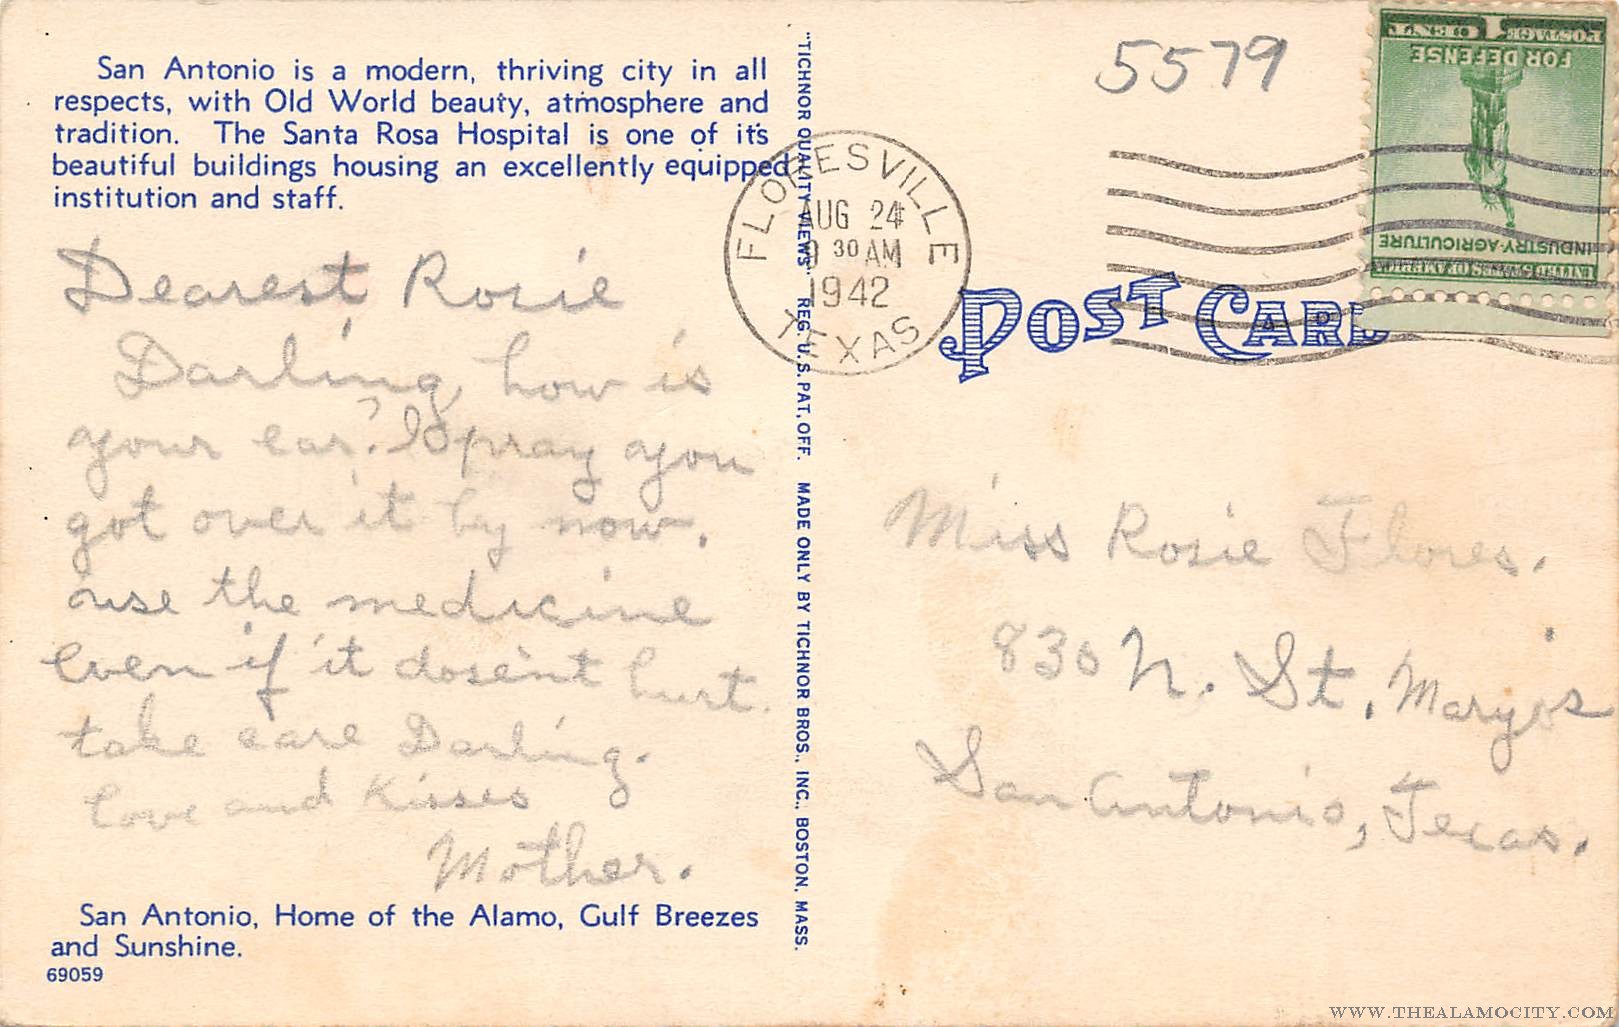 San Antonio is a modern, thriving city in all
respects, with Old World beauty, atmosphere and
tradition. The Santa Rosa Hospital is one of its
beautiful buildings housing an excellently equipped
institution and staff.
Dearest Rosie
Darling, how is
your ear? I pray you
got over it by now.
use the medicine
even if it dosent hurt.
take care Darling.
Love and Kisses
Mother.
San Antonio, Home of the Alamo, Gulf Breezes
and Sunshine.
69059
"TICHNOR QUALITY VIEWS" REG. U.S. PAT. OFF. MADE ONLY BY TICHNOR BROS., INC., BOSTON, MASS.
5579
FLORESVILLE
AUG 24
9 30 AM
1942
TEXAS
UNITED STATES OF AMERICA
INDUSTRY-AGRICULTURE
FOR DEFENSE
1 CENT POSTAGE
POST CARD
Miss Rosie Flores.
830 N. St. Mary's
San Antonio, Texas.
WWW.THEALAMOCITY.COM